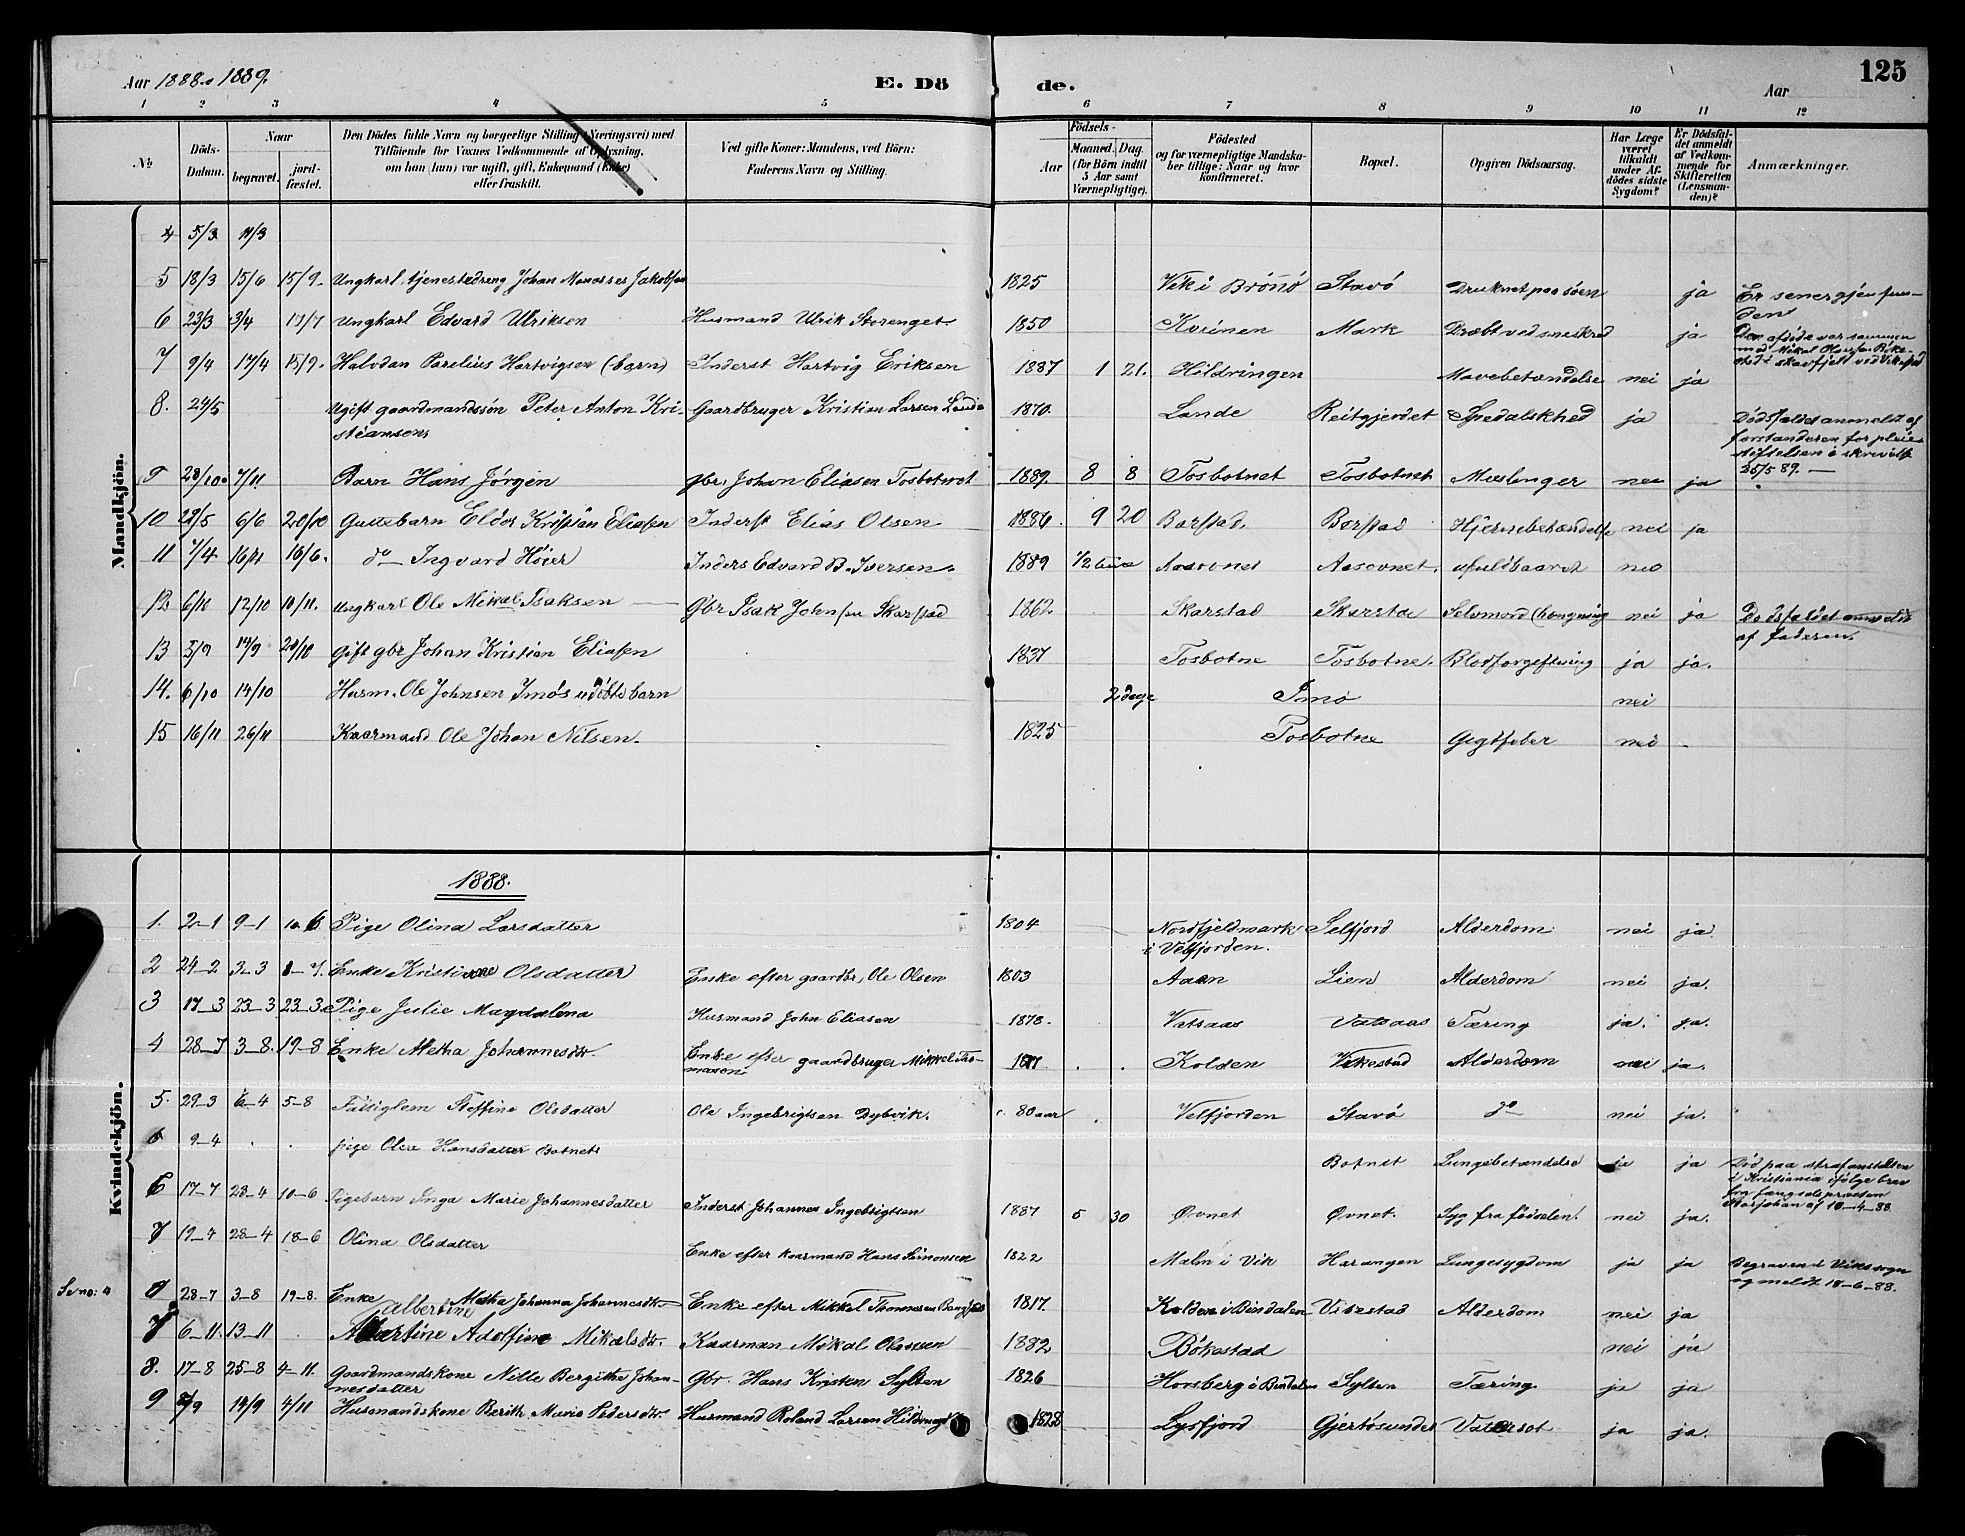 Aar 1888 o 1889. E. Dö de. Aar 125
1 2 3 4 5 6 7 8 9 10 11 12
№ Döds-Datum. Naar begravet. jordfæstet. Den Dödes fulde Navn og borgerlige Stilling (Næringsvei) med Tilföiende for Voxnes Vedkommende af Oplysning, om han (hun) var ugift, gift, Enkemand (Enke) eller fraskilt. Ved gifte Koner: Mandens, ved Börn: Faderens Navn og Stilling. Födsels- Aar Maaned. Dag. (for Börn indtil 5 Aar samt Værnepligtige). Födested og for værnepligtige Mandskaber tillige: Naar og hvor konfirmeret. Bopæl. Opgiven Dödsaarsag. Har Læge været tilkaldt under Afdödes sidste Sygdom? Er Dödsfaldet anmeldt af Vedkommende for Skifteretten (Lensmanden)? Anmærkninger.
Mandkjön.
4 5/3 11/3
5 18/3 15/6 15/9 Ungkarl, tjenestedreng Johan Monasses Jakobsen 1825 Vik i Brønø Stavö Druknet paa söen ja Er senere gjenfunden
6 23/3 3/4 Ungkarl Edvard Ulriksen Husmand Ulrik Storenget 1850 Kvinnen Mark Dræbt ved sneskred ja Den afdöde var sammen med Mikal Olaus
7 9/4 17/4 15/9 Halvdan Parelius Hartvigsen (barn) Inderst Hartvig Eriksen 1887 1 21. Hildringen Mavebetændelse nei ja
8. 24/5 Ugift gaardmandssön Peter Anton Kristiansen Gaardbruger Kristian Larsen Lande 1870 Lande Reitgjerdet Spedalskhed ja Dödsfaldet anmeldt af forstanderen for pleiestiftelsen i skrivelse 25/5 89.
9 28/10 7/11 Barn Hans Jørgen gbr. Johan Eliasen Tosbotnet 1889 8 8 Tosbotnet Tosbotnet Meslinger nei ja
10 29/5 6/6 20/10 Guttebarn Eldor Kristian Eliasen Inderst Elias Olsen 1886 9 20 Borstad Borstad Hjernebetændelse nei ja
11 7/4 16/4 16/6 do Ingvard Höier Inders Edvard B. Iversen 1889 1/2 time Aasovnet Aasovnet ufuldbaaret nei
12 6/10 12/10 10/11. Ungkarl Ole Mikal Isaksen Gbr Isak Johnsen Skarstad 1862 Skarstad Skarsta Selvmord (hængning nei ja Dödsfaldet anmeldt af faderen.
13 5/9 14/9 20/10 Gift gbr Johan Kristian Eliasen 1837 Tosbotne Tosbotne. Blodforgiftning ja ja.
14. 6/10 14/10 Husm. Ole Johnsen Imös udöbte barn 2 dage Imö nei
15 16/11 26/11 Kaarmand Ole Johan Nilsen. 1825 Tosbotne Gigtfeber nei
Kvindekjön.
1888.
1. 2-1 9-1 10.6 Pige Olina Larsdatter 1804 Nordfjeldmark i Velfjorden. Selfjord Alderdom nei ja.
2 24-2 3-3 Enke Kristianne Olsdatter Enke efter gaardbr. Ole Olsen 1803 Aaen Lien Alderdom nei ja.
3 17-3 23-3 23-3 Pige Julie Magdalena Husmand John Eliasen 1878. Vatsaas Vatsaas Tæring ja. ja.
4 28-7 3-8. 19-8 Enke Metha Johannesdtr. Enke efter gaardbruger Mikkel Thomasen 1817 Kolden Vikestad Alderdom nei ja.
5. 29-3 6-4 5-8 Fattiglem Steffine Olsdatter Ole Ingebrigtsen Dybvik. 80 aar Velfjorden Stavö do nei ja.
6 9-4 pige Olea Hansdatter Botnet Botnet Lungebetændelse ja ja Död paa strafanstalten i Kristiania ifölge brev fra fængselspræsten af 10-4-88.
6 17-7 28-4 10-6 Pigebarn Inga Marie Johannesdatter Inderst Johannes Ingebrigtsen 1887 5 30 Øvnet Øvnet. Syg fra födselen. nei ja.
7 19-4 28-4 18-6 Olina Olsdatter Enke efter kaarmand Hans Simonsen 1822 Malm i Vik Harangen Lungesygdom ja ja Begraven i Viks sogn og meldt 18-6-88.
Se no: 4 8 28-7 3-8 19-8. Enke Metha Johanna Johannesdtr. Enke efter Mikkel Thomesen 1817. Kolden i Bindalen Vikestad Alderdom nei ja
7 6-11. 13-11 Albertine Adolfine Mikalsdtr. Kaarman Mikal Olaussen 1882 Bökestad nei ja
8. 17-8 25-8 4-11. Gaardmandskone Nille Bergitha Johannesdatter Gbr. Hans Kristen Sylten 1826 Horsberg i Bindalen Sylten Tæring ja ja
9 5/9 14/9 4/11 Husmandskone Berith Maria Pedersdtr. Husmand Roland Larsen 1828 Lysfjord Gjertösundet Vatersot ja ja.